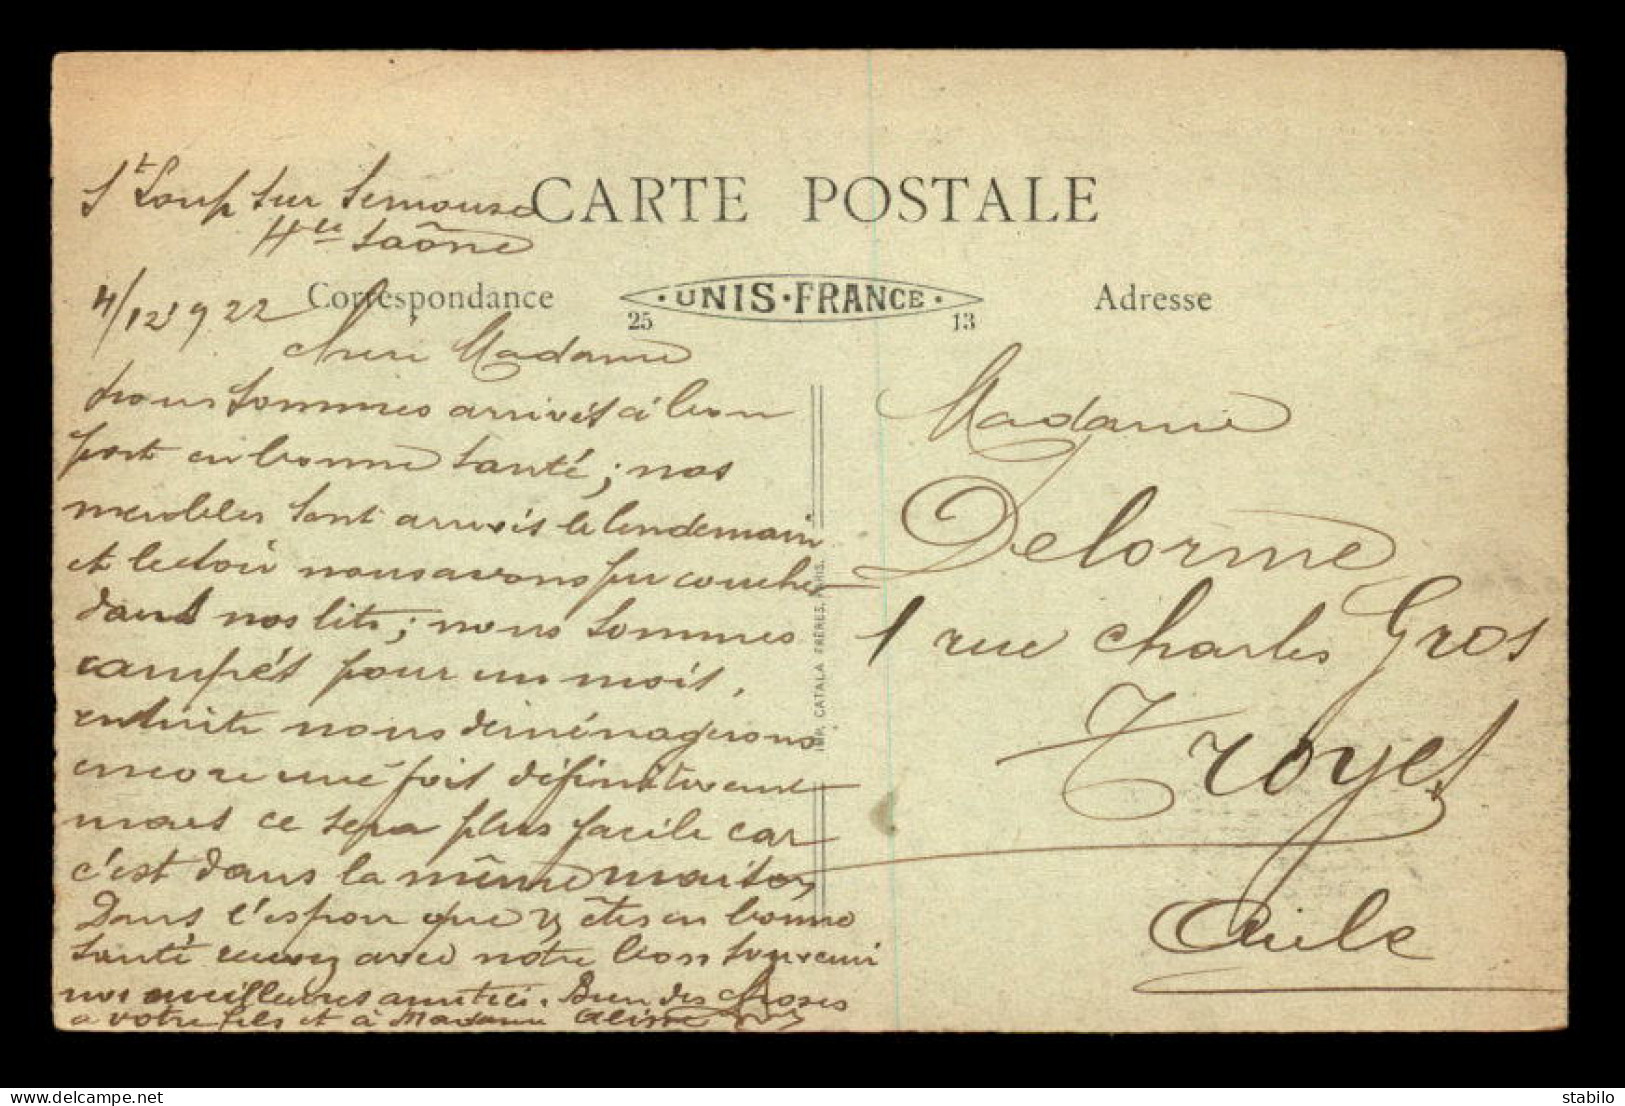 St Loup sur Semouse
Hte Saône
CARTE POSTALE
Correspondance
UNIS-FRANCE
25 13
Adresse
4/12 1922
Chère Madame
nous sommes arrivés à bon
port en bonne santé ; nos
meubles sont arrivés le lendemain
et le soir nous avons pu coucher
dans nos lits ; nous sommes
campés pour un mois,
ensuite nous deménagerons
encore une fois définitivement
mais ce sera plus facile car
c'est dans la même maison
Dans l'espoir que v êtes en bonne
santé recevez avec notre bon souvenir
nos meilleures amitiés. Bien des choses
a votre fils et à Madame
Madame
Delorme
1 rue Charles Gros
Troyes
Aube
IMP. CATALA FRÈRES, PARIS.
delcampe.net
stabilo